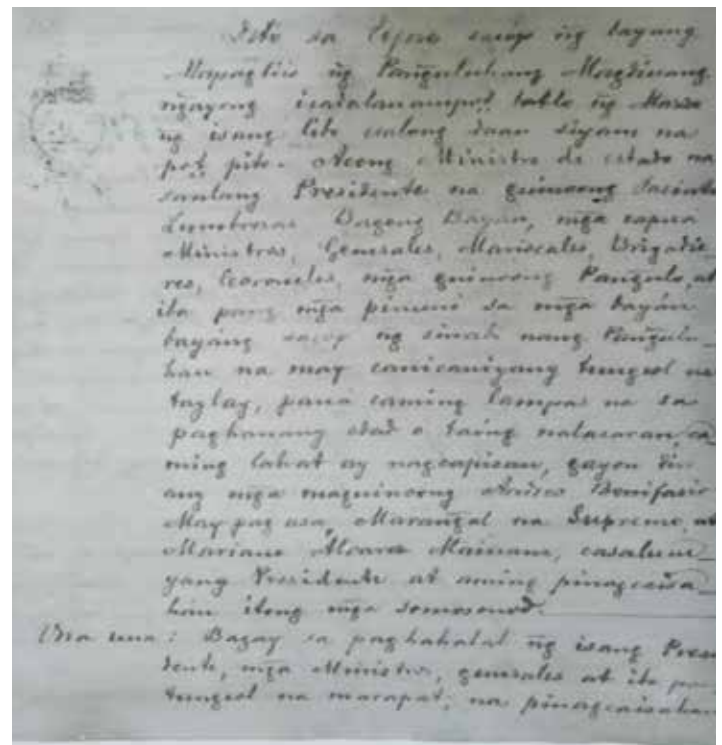 Dito sa Tejero sacop ng bayang
Mapagtiis ng Pangoluhang Magdiwang
ngayong icadalauampu't tatlo ng Marzo
ng isang libo ualong daan siyam na
pu't pito. Acong Ministro de estado na
Presidente na guinoong Jacinto
Lumbreras Bagong Bayan, mga capua
Ministros, Generales, Mariscales, Brigadie-
res, Coroneles, mga guinoong Pangulo, at
iba pang mga pinunò sa mga bayán
bayang sacop ng Pangulu-
han na may canicaniyang tungcol na
taglay, pauá caming lampas na sa
paghanang edad o taing
ming lahat ay nagcapisan, gayon din
ang mga maguinoong Andres Bonifasio
May pag asa, Marangal na Supremo, at
Mariano Alvares Mainam, casalucu-
yang Presidente at aming pinagcaisa-
han itong mga somosonod.
Una una: Bagay sa paghahalal ng isang Presi-
dente, mga Ministro, generales at iba pang
tungcol na marapat, na pinagcaisahan